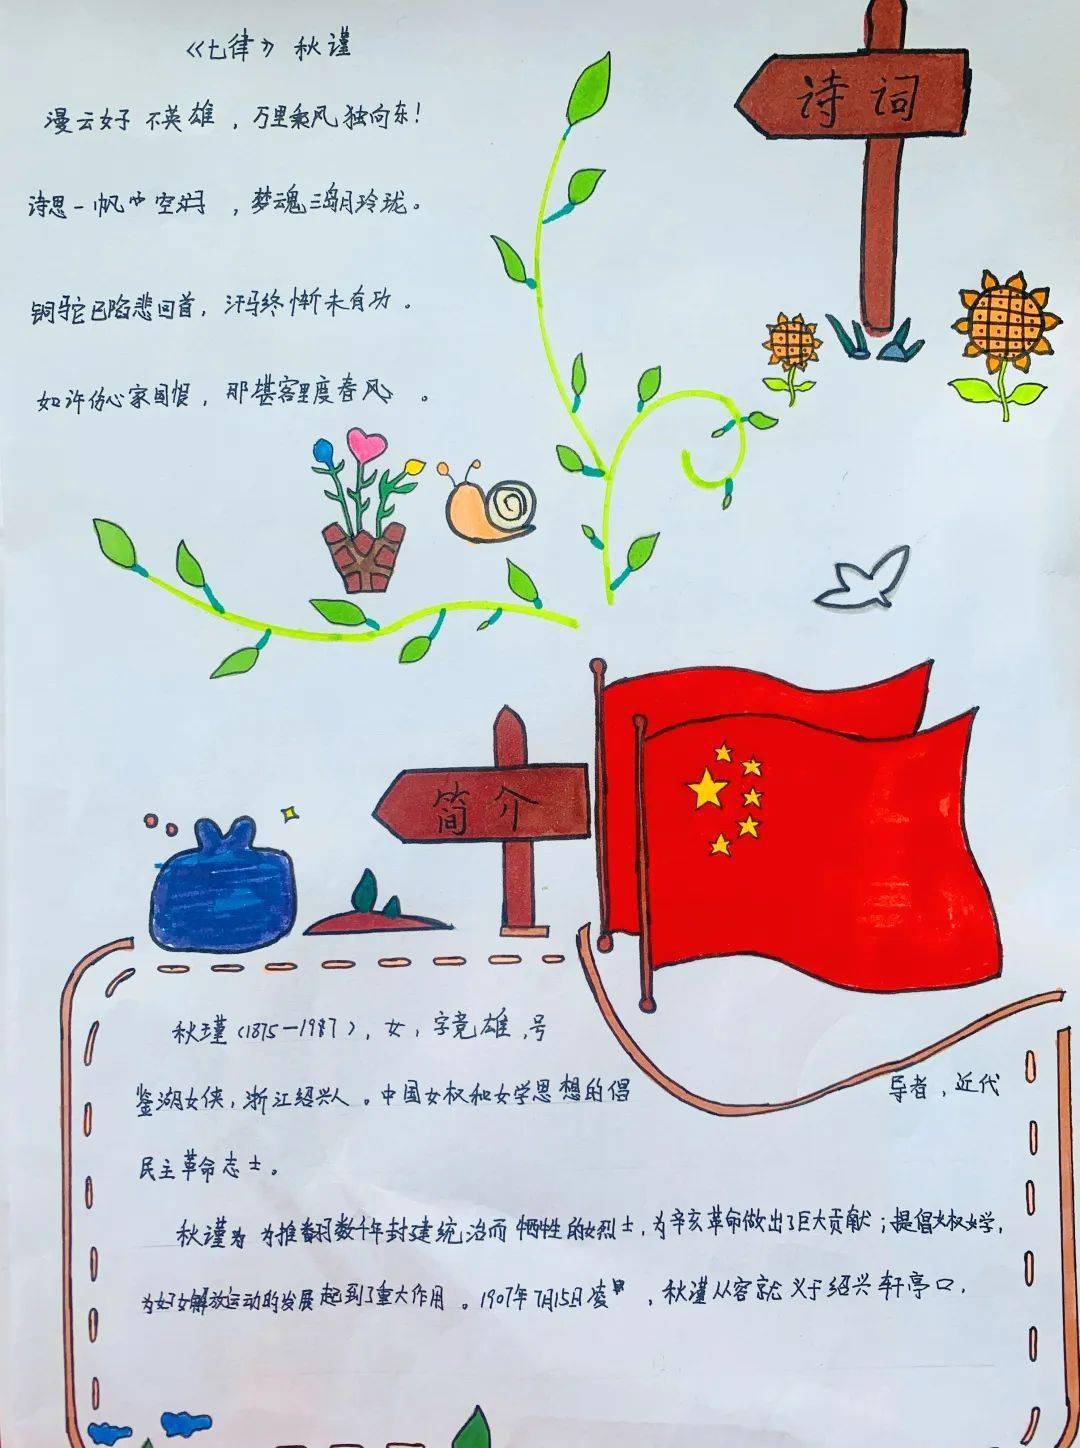 《七律》 秋谨
诗词
漫云女子不英雄，万里乘风独向东！
诗思一帆 空 ，梦魂三岛月玲珑。
铜驼已陷悲回首，汗马终惭未有功。
如许伤心家国恨，那堪客里度春风。
简介
秋瑾（1875—1987），女，字竞雄，号
鉴湖女侠，浙江绍兴人。中国女权和女学思想的倡 导者，近代
民主革命志士。
秋谨为 为推翻数千年封建统治而牺牲的女烈士，为辛亥革命做出了巨大贡献；提倡女权女学，
为妇女解放运动的发展起到了重大作用。1907年7月15日凌 ，秋谨从容就义于绍兴轩亭口．